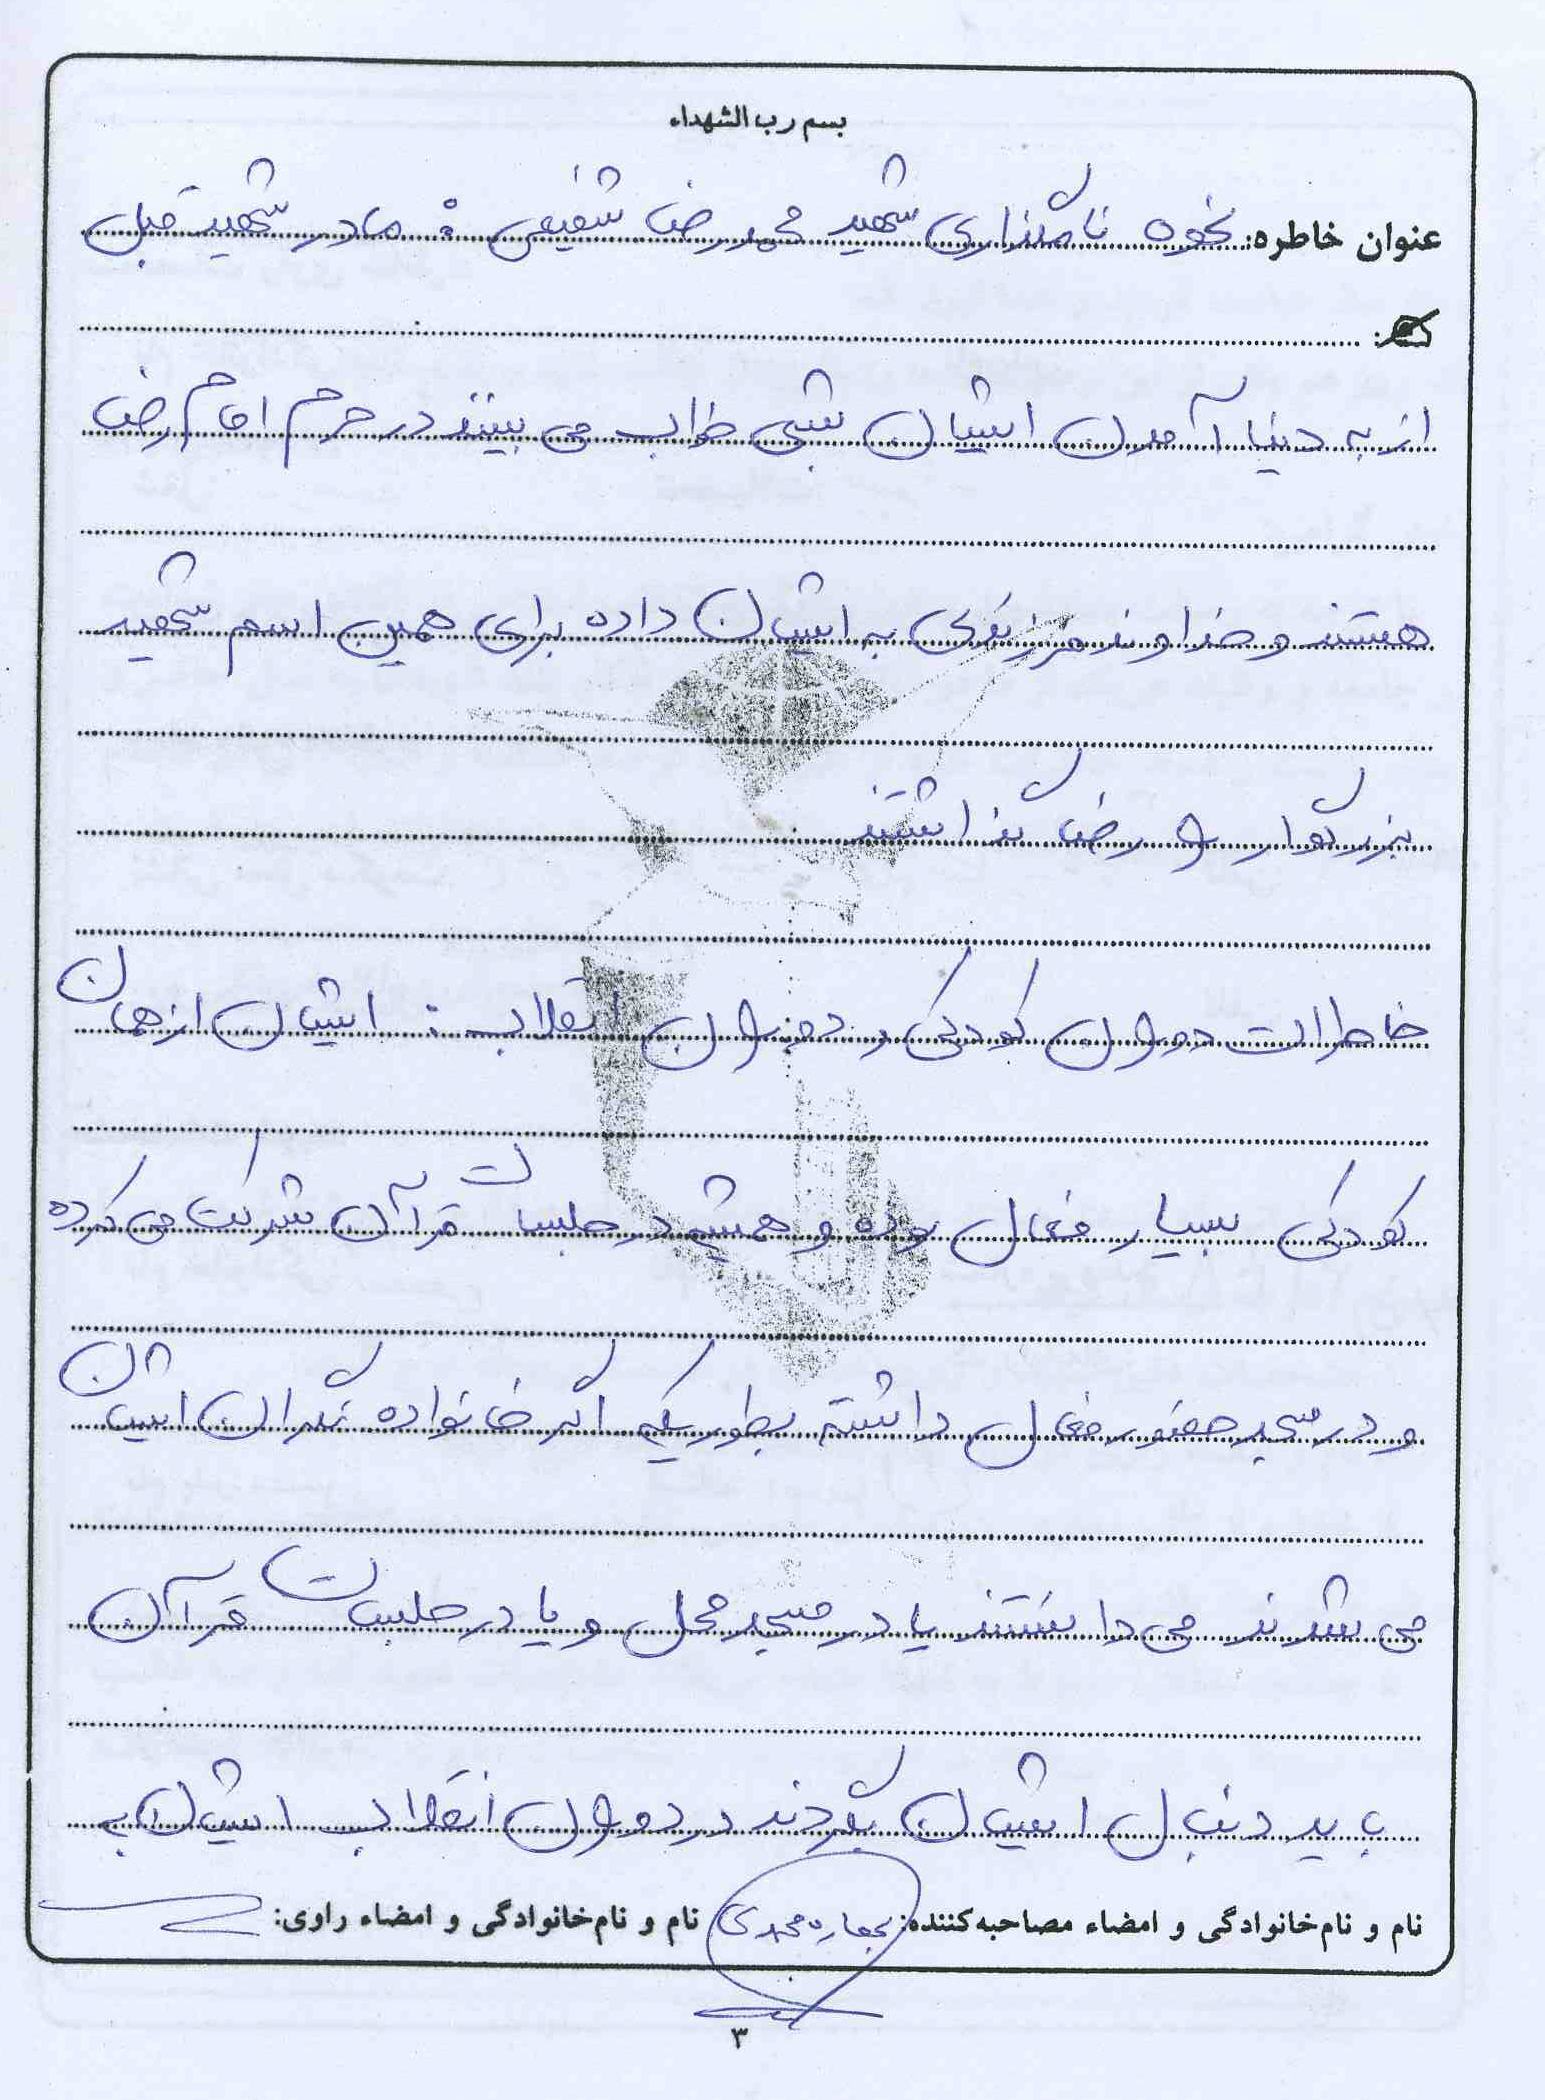 بسم رب الشهداء
عنوان خاطره: نحوه نامگذاری شهید محمدرضا شفیعی : مادر شهید قبل
از به دنیا آمدن ایشان شبی خواب می بینند در حرم امام رضا
هستند و خداوند فرزندی به ایشان داده برای همین اسم شهید
بزرگوار را رضا گذاشتند
خاطرات دوران کودکی و دوران انقلاب : ایشان از همان
کودکی بسیار فعال بوده و همیشه در جلسات قرآن شرکت می کرده
و در مسجد حضور فعال داشته بطوریکه اگر خانواده نگران ایشان
می شدند می دانستند یا در مسجد محل و یا در جلسات قرآن
باید دنبال ایشان بگردند در دوران انقلاب ایشان به
نام و نام خانوادگی و امضاء مصاحبه کننده: بهاره محمدی نام و نام خانوادگی و امضاء راوی:
۳